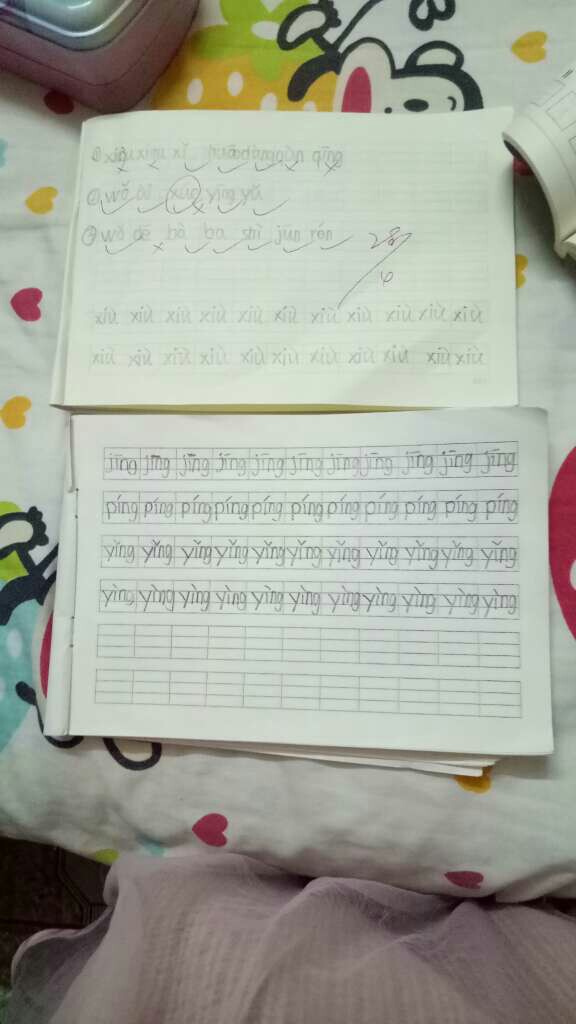 ① xiù xiǎu xǐ huānɡ qīng
② wǒ ài xué yīng yǔ
③ wǒ dē bà ba shì jūn rén 28/6
xiù xiù xiù xiù xiù xiù xiù xiù xiù xiù xiù
xiù xiù xiù xiù xiù xiù xiù xiù xiù xiù xiù
jīng jīng jīng jīng jīng jīng jīng jīng jīng jīng jīng
píng píng píng píng píng píng píng píng píng píng píng
yǐng yǐng yǐng yǐng yǐng yǐng yǐng yǐng yǐng yǐng yǐng
yìng yìng yìng yìng yìng yìng yìng yìng yìng yìng yìng